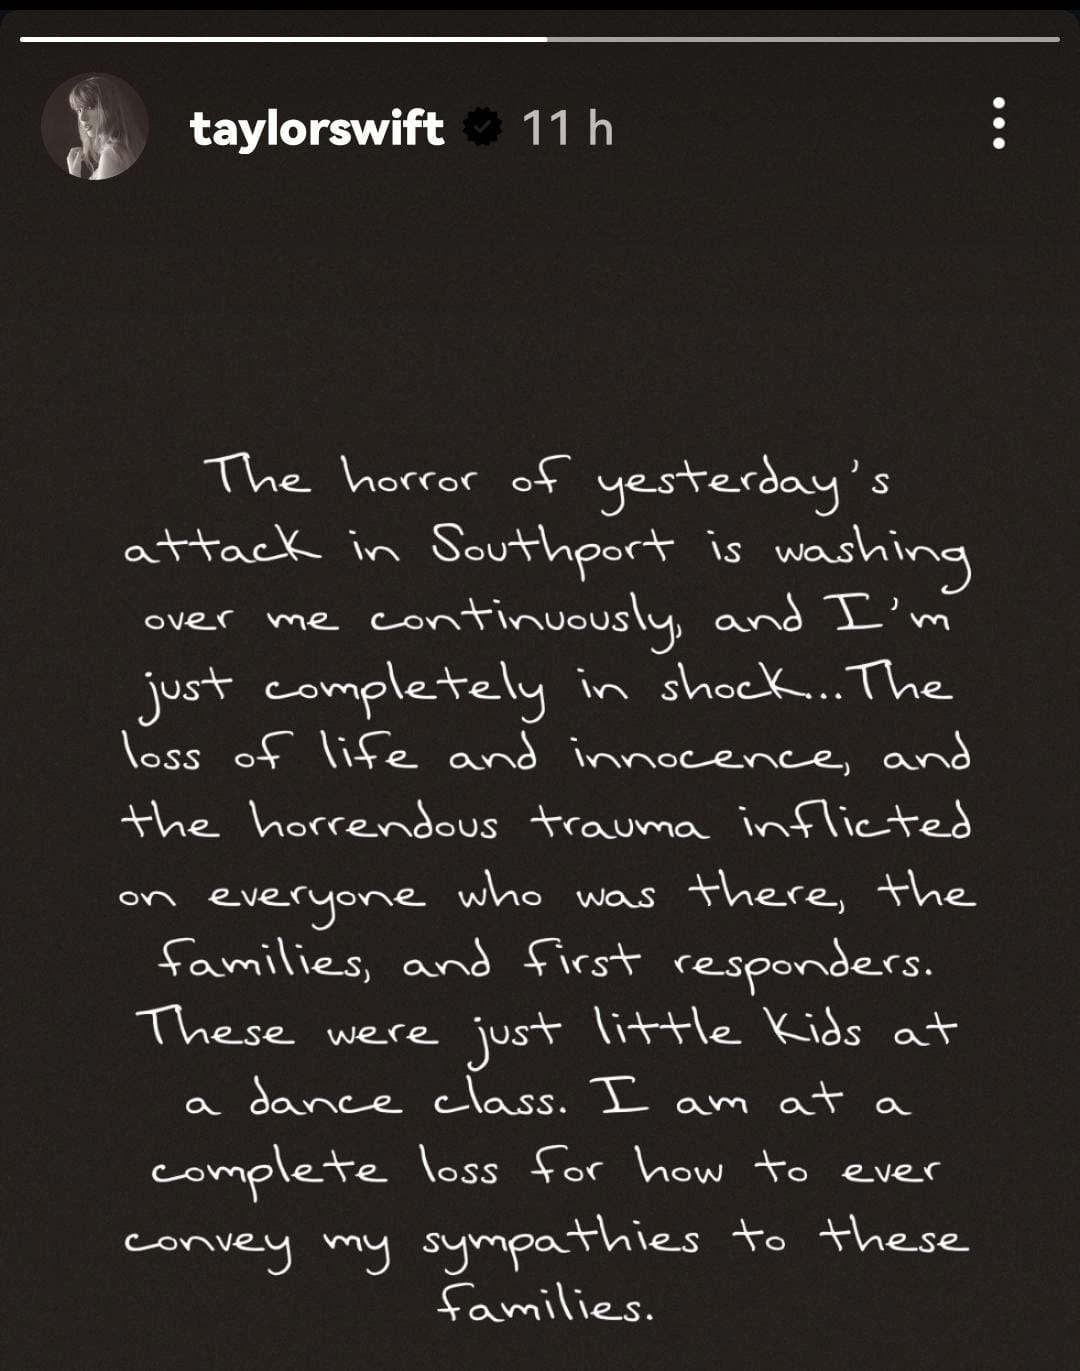 taylorswift 11 h
The horror of yesterday's
attack in Southport is washing
over me continuously, and I'm
just completely in shock...The
loss of life and innocence, and
the horrendous trauma inflicted
on everyone who was there, the
families, and first responders.
These were just little kids at
a dance class. I am at a
complete loss for how to ever
convey my sympathies to these
families.